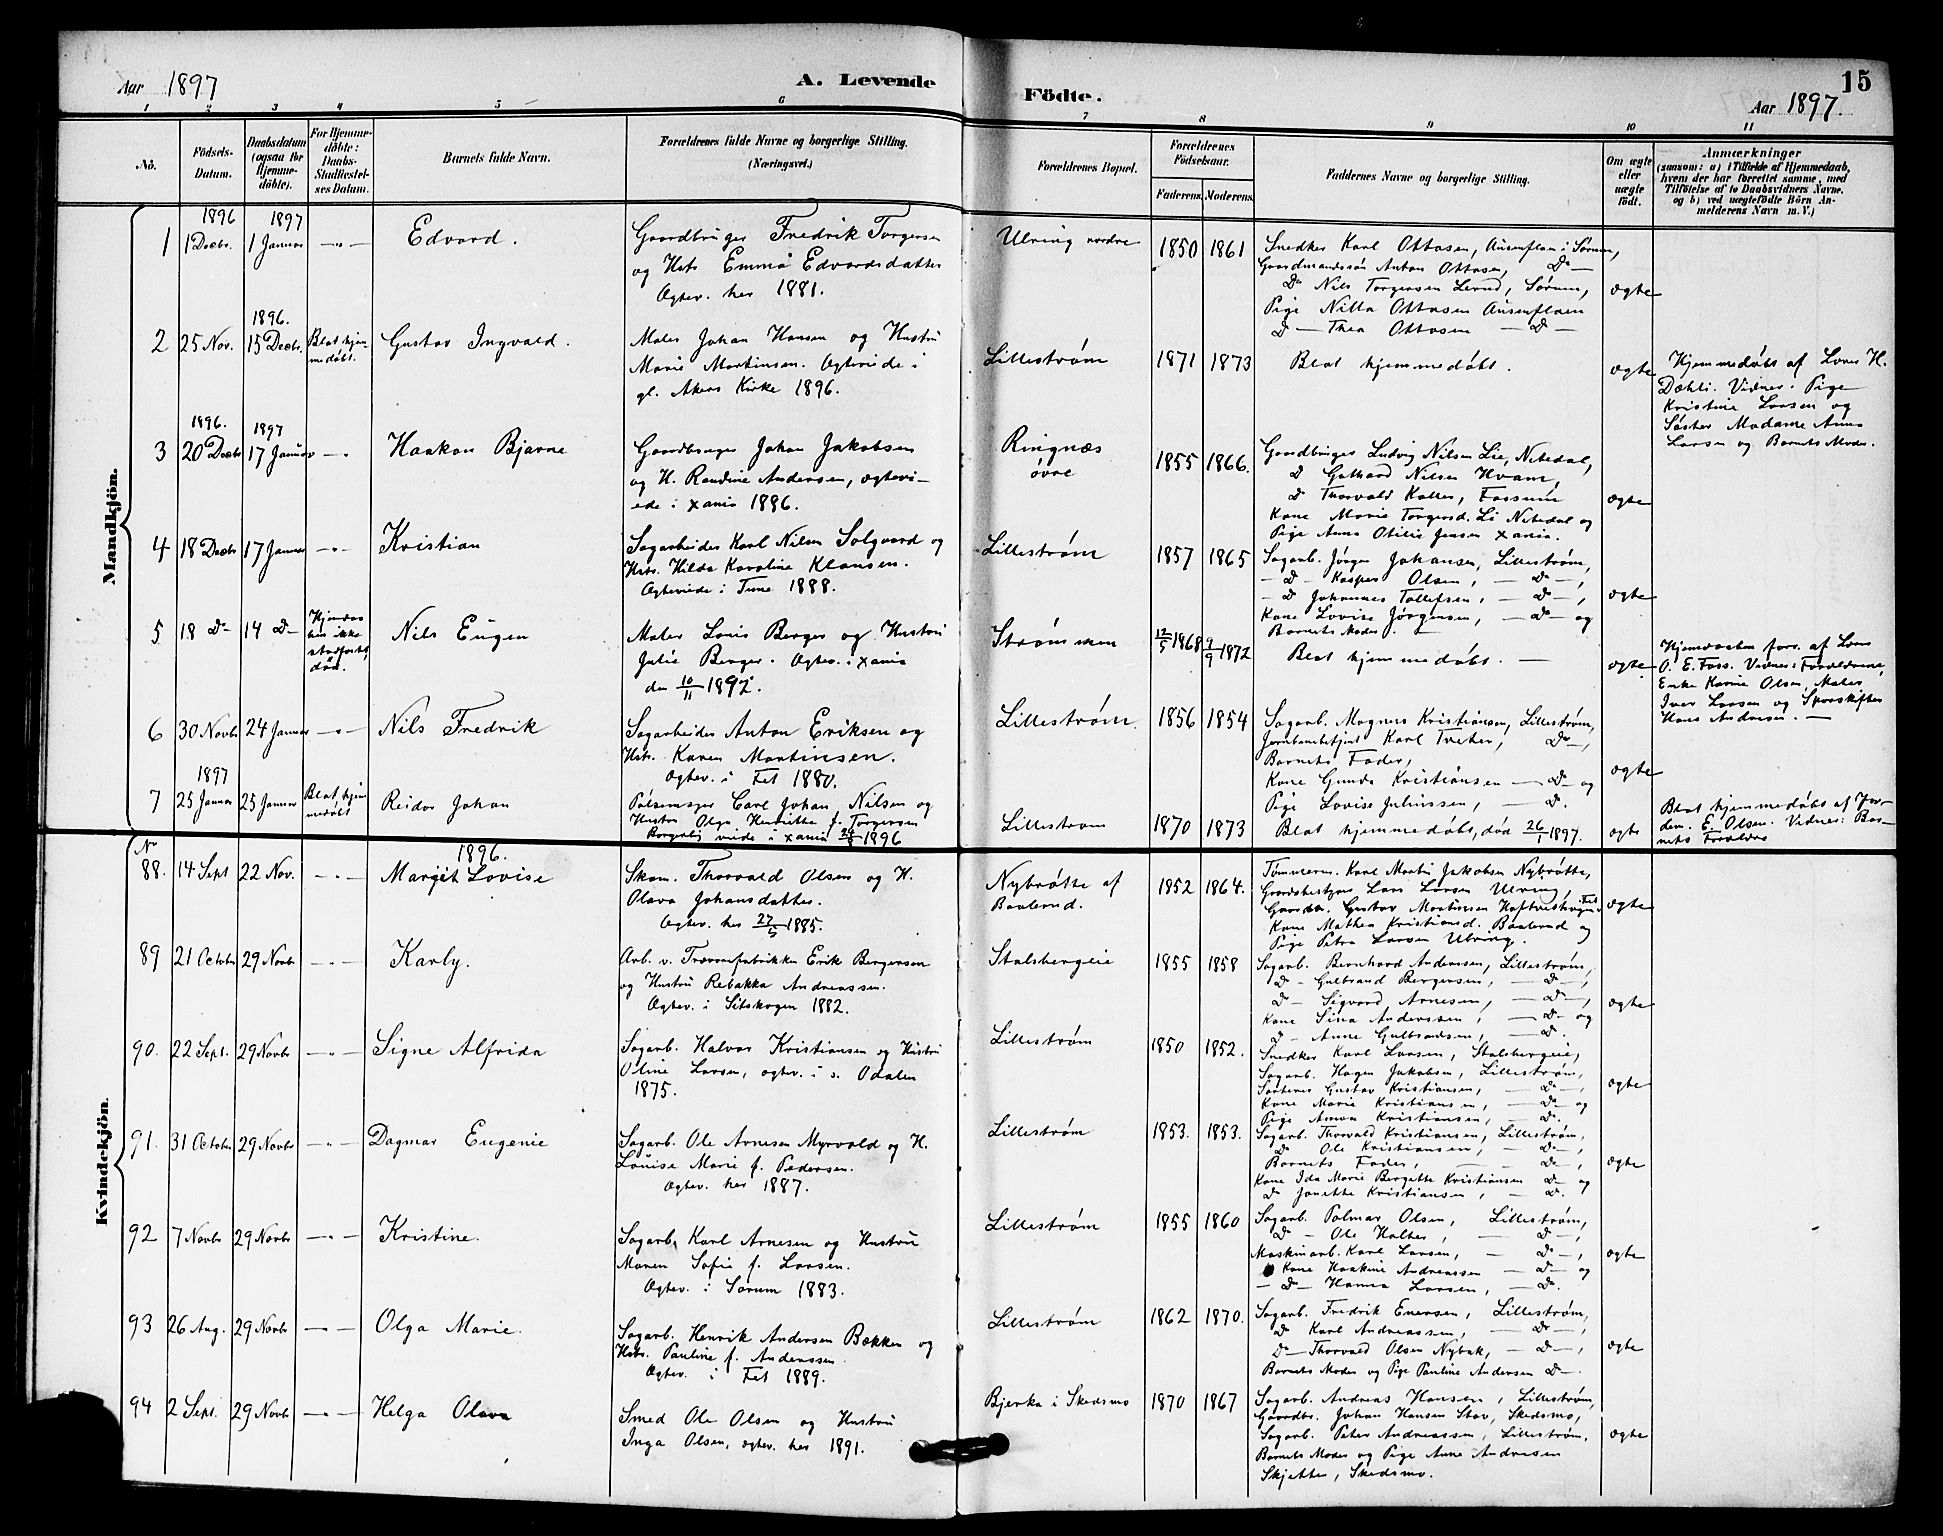 Aar 1897
A. Levende
Födte.
15
Aar 1897.
1 2 3 4 5 6 7 8 9 10 11
No.
Födsels-
Datum.
Daabsdatum
(ogsaa for
Hjemme-
döbte).
For Hjemme-
döbte:
Daabs-
Stadfæstel-
ses Datum.
Barnets fulde Navn.
Forældrenes fulde Navne og borgerlige Stilling.
(Næringsvei.)
Forældrenes Bopæl.
Forældrenes
Födselsaar.
Faderens. Moderens.
Faddernes Navne og borgerlige Stilling.
Om ægte
eller
uægte
födt.
Anmærkninger
(saasom: a) i Tilfælde af Hjemmedaab,
hvem der har forrettet samme, med
Tilföielse af to Daabsvidners Navne.
og b) ved uægtefödte Börn An-
melderens Navn m. V.)
Mandkjön.
1896 1897
1 1 Decbr. 1 Januar —"— Edvard.
Gaardbruger Fredrik Torgersen
og Hstr. Emma Edvardsdatter
Ægtev. her 1881.
Ulving nordre 1850 1861
Snedker Karl Ottosen, Ausenfloen i Sørum,
Gaardmandssøn Anton Ottosen, Do —
Do Nils Torgersen Lerud, Sørum,
Pige Nilla Ottosen Ausenfloen
D — Thea Ottosen — D —
ægte
1896.
2 25 Nov. 15 Decbr. Blot hjem-
medøbt.
Gustav Ingvald.
Maler Johan Hansen og Hustru
Marie Martinsen. Ægteviede i
gl. Akers Kirke 1896.
Lillestrøm 1871 1873 Blot hjemmedøbt. ægte
Hjemmedøbt af Lars H.
Dæhli. Vidner: Pige
Kristine Larsen og
Søster Madame Anna
Larsen og Barnets Moder.
1896. 1897
3 20 Decbr 17 Januar —"— Haakon Bjarne
Gaardbruger Johan Jakobsen
og H. Randine Andersen, ægtevi-
ede i Xania 1886.
Ringnæs
øvre
1855 1866.
Gaardbruger Ludvig Nilsen Lie, Nitedal,
D Gothard Nilsen Hvam,
D Thorvald Kolter, Fossum
Kone Marie Torgersd. Li Nitedal og
Pige Anna Otilie Jensen Xania.
ægte
4 18 Decbr 17 Januar —"— Kristian
Sagarbeider Karl Nilsen Solgaard og
Hstr. Hilda Karoline Klausen.
Ægteviede i Tune 1888.
Lillestrøm 1857 1865
Sagarb. Jørgen Johansen, Lillestrøm,
— D — Kasper Olsen, — D —,
— D Johannes Tollefsen, — D —,
Kone Lovise Jørgensen, — D — og
Barnets Moder. —
ægte
5 18 D— 14 D— Hjemdaa-
ben ikke
stadfæstet,
død.
Nils Eugen
Maler Louis Berger og Hustru
Julie Berger. Ægtev. i Xania
den 10/11 1892.
Strømmen 12/5 1868 9/9 1872 Blot hjemmedøbt. — ægte
Hjemdaaben forr. af Lars
O. E. Foss. Vidner: Forældrene,
Enke Karine Olsen, Maler
Iver Larsen og Sporskifter
Hans Andersen. —
6 30 Novbr 24 Januar —"— Nils Fredrik
Sagarbeider Anton Eriksen og
Hstr. Karen Martinsen.
Ægtev. i Fet 1880.
Lillestrøm 1856 1854
Sagarb. Magnus Kristiansen, Lillestrøm,
Jernbanebetjent Karl Treter, Do —,
Barnets Fader,
Kone Gunda Kristiansen — D — og
Pige Lovise Juliussen, — D.
ægte
1897
7 25 Januar 25 Januar Blot hjem-
medøbt Reidar Johan
Pølsemager Carl Johan Nilsen og
Hustru Olga Henriette f. Torgersen
Borgerlig viede i Xania 24/8 1896
Lillestrøm 1870 1873 Blot hjemmedøbt, død 26/1 1897. ægte
Blot hjemmedøbt af Jor-
dem. E. Olsen. Vidner: Bar-
nets Forældre
Kvindekjön.
No 1896.
88. 14 Sept 22 Nov. —"— Margit Lovise
Skom. Thorvald Olsen og H.
Olava Johansdatter.
Ægtev. her 27/5 1885.
Nybrøtte af
Baalerud.
1852 1864.
Tømmerm. Karl Martin Jakobsen Nybrøtte,
Gaardbestyrer Lars Larsen Ulving,
Gaardm. Gustav Martinsen
Kone Mathea Kristiansd. Baalerud og
Pige Petra Larsen Ulving.
ægte
89 21 Octobr 29 Novbr —"— Karly.
Arb. v. Trævarefabrikken Erik Bergersen
og Hustru Rebekka Andreassen.
Ægtev. i Sitskogen 1882.
Stalsbergeie 1855 1858
Sagarb. Bernhard Anderssen, Lillestrøm,
D — Gulbrand Bergersen, — D —,
D — Sigvard Arnesen, — D —,
Kone Sina Anderssen, — D — og
D — Anne Gulbrandsen, — D.
ægte
90. 22 Sept. 29 Novbr —"— Signe Alfrida
Sagarb. Halvor Kristiansen og Hustru
Oline Larsen, ægtev. i s. Odalen
1875.
Lillestrøm 1850 1852.
Snedker Karl Larsen, Stalsbergeie,
Sagarb. Hagen Jakobsen, Lillestrøm,
Sorterer Gustav Kristiansen, — D —,
Kone Marie Kristiansen, — D — og
Pige Anna Kristiansen, — D.
ægte
91. 31 Octobr 29 Novbr —"— Dagmar Eugenie
Sagarb. Ole Arnesen Myrvold og H.
Louise Marie f. Pedersen.
Ægtev. her 1887.
Lillestrøm 1853. 1853.
Sagarb. Thorvald Kristiansen, Lillestrøm,
D Ole Kristiansen, — D —,
Barnets Fader, — D —,
Kone Ida Marie Bergette Kristiansen D — og
D Janette Kristiansen, — D.
ægte
92 7 Novbr 29 Novbr —"— Kristine.
Sagarb. Karl Arnesen og Hustru
Maren Sofie f. Larsen.
Ægtev. i Sørum 1883.
Lillestrøm 1855 1860
Sagarb. Palmar Olsen, Lillestrøm,
D — Ole Holter, — D —,
Maskinarb. Karl Larsen, — D —,
Kone Haakine Andreassen — D — og
— D — Hanna Larsen, — D.
ægte
93 26 Aug. 29 Novbr —"— Olga Marie.
Sagarb. Henrik Andersen Bakken og
Hstr. Pauline f. Anderssen.
Ægtev. i Fet 1889.
Lillestrøm 1862 1870.
Sagarb. Fredrik Enersen, Lillestrøm,
D Karl Andreassen, — D —,
D — Thorvald Olsen Nybak, — D —,
Barnets Moder og Pige Pauline Andersen D —
ægte
94 2 Sept. 29 Novbr —"— Helga Olava
Smed Ole Olsen og Hustru
Inga Olsen, ægtev. her 1891.
Bjerka i Skedsmo 1870 1867
Sagarb. Andreas Hansen, Lillestrøm,
Gaardbr. Johan Hansen Stav, Skedsmo,
Sagarb. Peter Andreassen, Lillestrøm,
Barnets Moder og Pige Anna Andresen
Skjetten, Skedsmo.
ægte